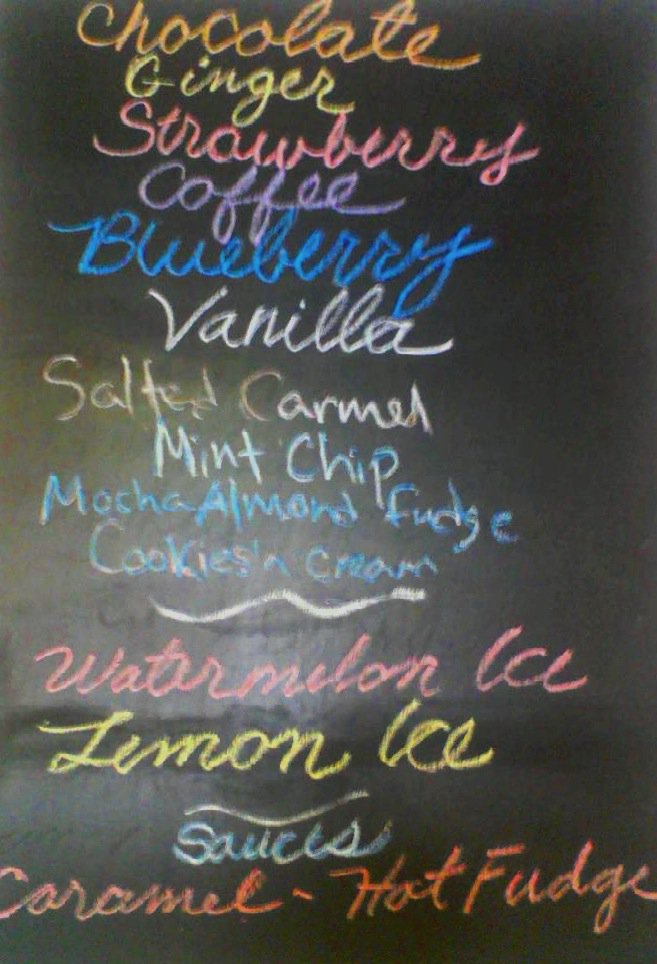 Chocolate
Ginger
Strawberry
Coffee
Blueberry
Vanilla
Salted Carmel
Mint Chip
Mocha Almond Fudge
Cookies'n Cream
Watermelon Ice
Lemon Ice
Sauces
Caramel - Hot Fudge